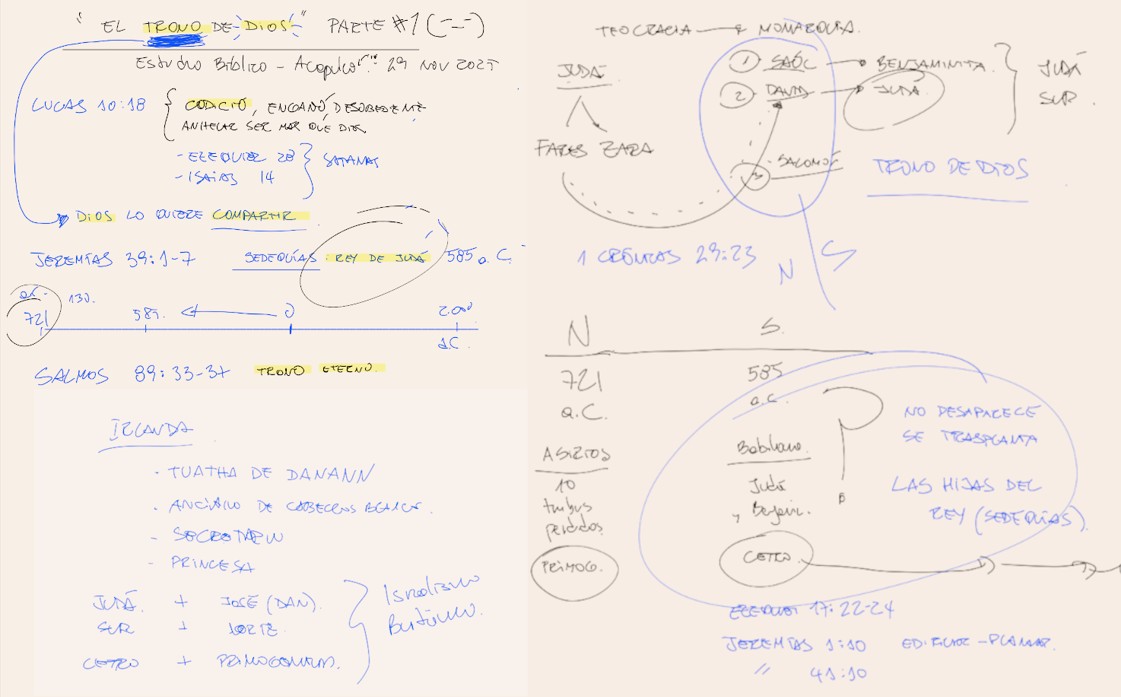 "EL TRONO DE DIOS" PARTE #1 (---)
Estudio Bíblico - Acapulco 29 NOV 2025
LUCAS 10:18
CODICIÓ, ENGAÑÓ, DESOBEDIENTE
ANHELAR SER MAS QUE DIOS
- EZEQUIEL 28
- ISAÍAS 14
SATANAS
DIOS LO QUIERE COMPARTIR
JEREMIAS 39:1-7 SEDEQUÍAS REY DE JUDÁ 585 a.C.
a.C. 130.
721 585. 0 2.000
d.C.
SALMOS 89:33-37 TRONO ETERNO
IRLANDA
- TUATHA DE DANANN
- ANCIANO DE CABELLOS BLANCOS.
- SECRETARIO
- PRINCESA
JUDÁ. + JOSÉ (DAN).
SUR + NORTE
CETRO + PRIMOGENITURA.
Israelismo
Británico.
TEOCRACIA → MONARQUIA.
JUDÁ
FARES ZARA
1 SAÚL → BENJAMINITA.
2 DAVID → JUDÁ
3 SALOMÓN
JUDÁ
SUR.
TRONO DE DIOS
1 CRÓNICAS 29:23
N S
N S.
721 585
a.C. a.C.
ASIRIOS Babilonia.
10 Judá
tribus y Benjamin.
perdidas
PRIMOG. CETRO
NO DESAPARECE
SE TRASPLANTA
LAS HIJAS DEL
REY (SEDEQUÍAS)
EZEQUIEL 17:22-24
JEREMIAS 1:10 EDIFICAR - PLANTAR.
" 41:10